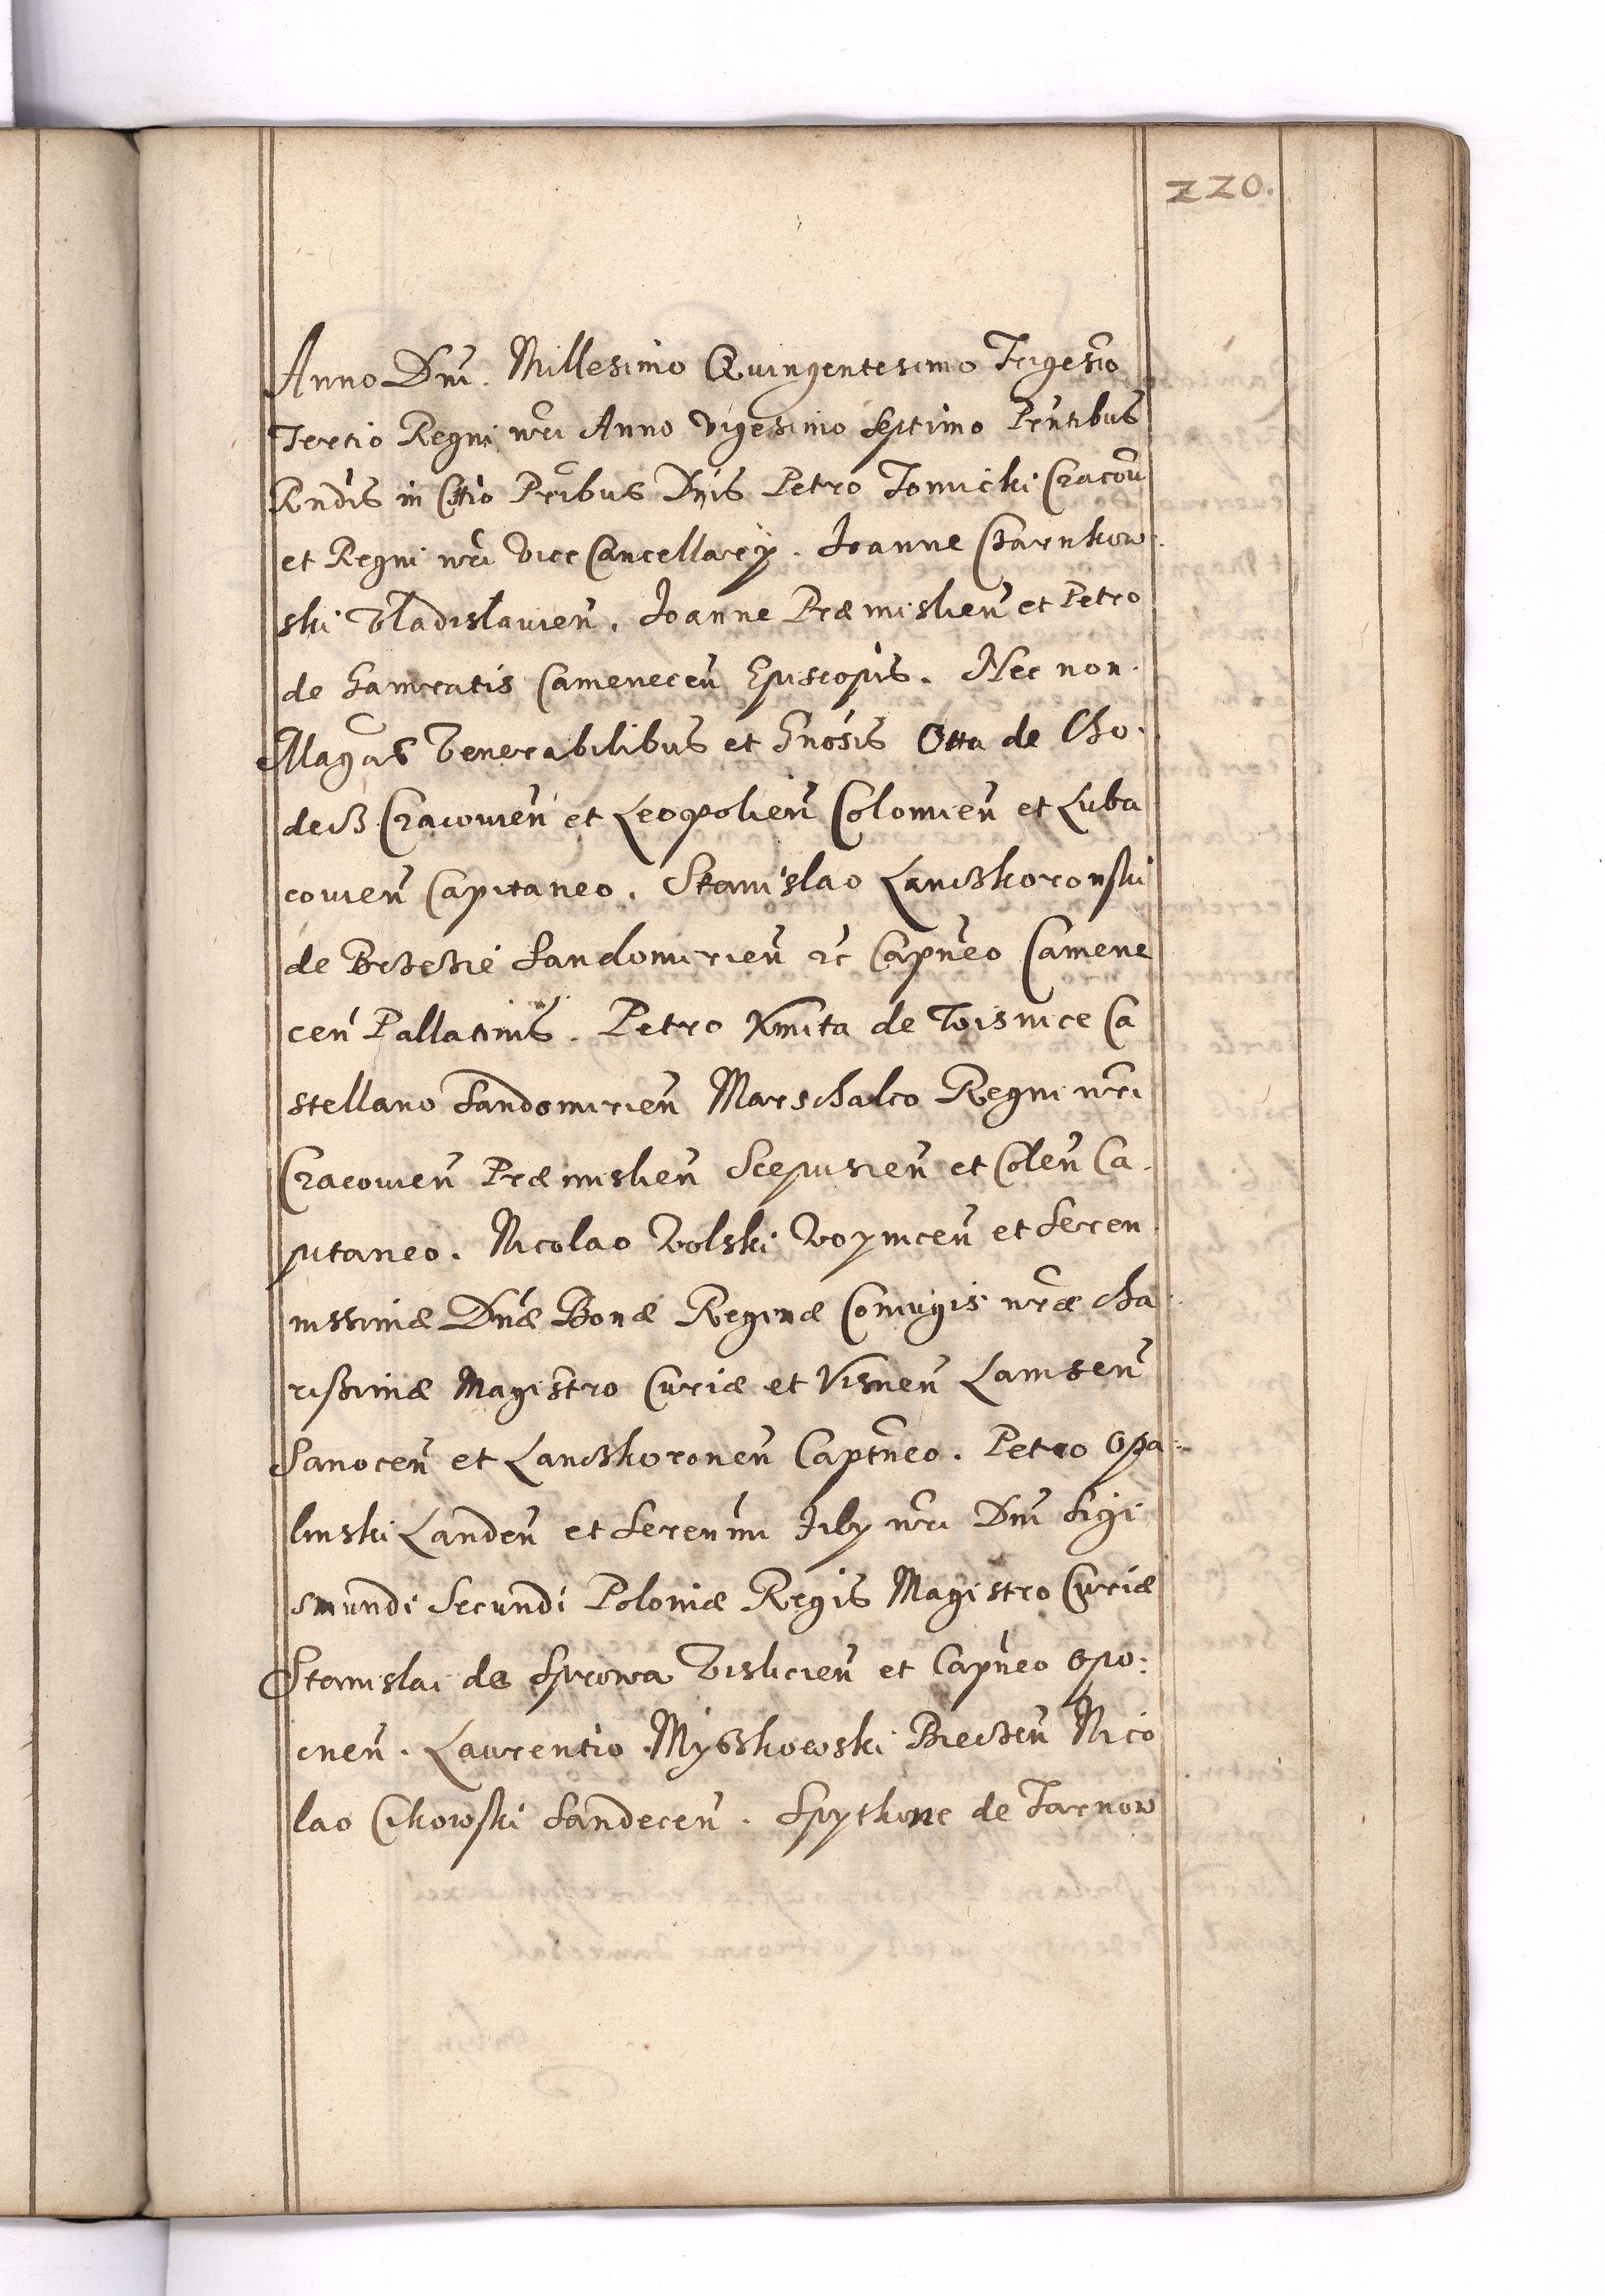 220.
Anno Dni. Millesimo Quingentesimo Trigesĩo
Tertio Regni nr̃i Anno Vigesimo Septimo Prñtibus
Rndis in Chrõ Pribus Dñis Petro Tomicki Cracoũ
et Regni nr̃i Vice Cancellarÿ. Joanne Charnkow
ski Vladislauieñ. Joanne Præmislieñ et Petro
de Gamratis Cameneceñ Episcopis. Nec non.
Magcis Venerabilibus et Gnosis Otta de Cho.
decz Cracouieñ et Leopolieñ Colomieñ et Luba
couieñ Capitaneo. Stanislao Lanczkoronski
de Brzezie Sandomirieñ et Capneo Camene
ceñ Pallatinis. Petro Kmita de Visnice Ca
stellano Sandomirieñ Marschalco Regni nr̃i
Cracouieñ Præmislieñ Scepusieñ et Coleñ Ca.
pitaneo. Nicolao Wolski Woyniceñ et Seren
nissimæ Dnæ Bonæ Reginæ Coniugis nr̃æ cha
rißimæ Magistro Curiæ et Visneñ Lamseñ
Sanoceñ et Lanczkoroneñ Captñeo. Petro Opa
linski Landeñ et Serenmi Filÿ nr̃i Dni Sigi
smundi Secundi Poloniæ Regis Magistro Curiæ
Stanislai de Sprowa Vislicieñ et Capneo Opo:
cneñ. Laurentio Myszkowski Bieczeñ Nico
lao Cikowski Sandeceñ. Spythone de Tarnow